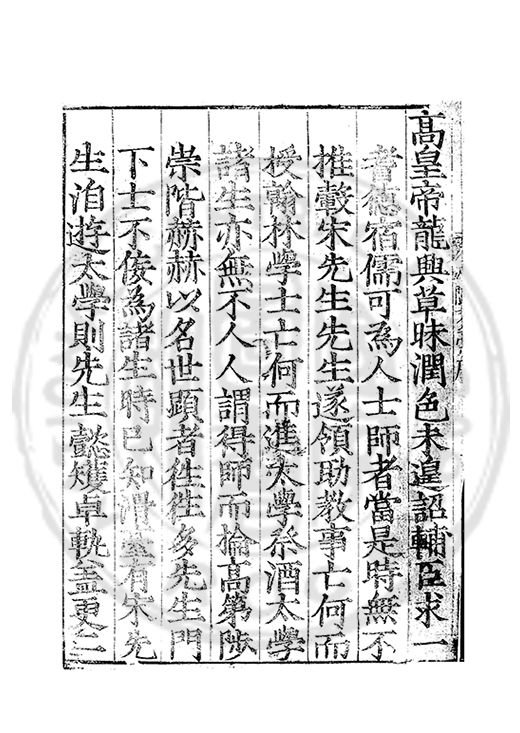 高皇帝龍興草昧潤色未遑詔輔臣求一
耆德宿儒可為人士師者當是時無不
推轂宋先生先生遂領助教事亡何而
授翰林學士亡何而進太學祭酒太學
諸生亦無不人人謂得師而掄高第陟
崇階赫赫以名世顯者徃徃多先生門
下士不佞為諸生時已知滑臺有宋先
生洎遊太學則先生懿矱卓軌盖更二